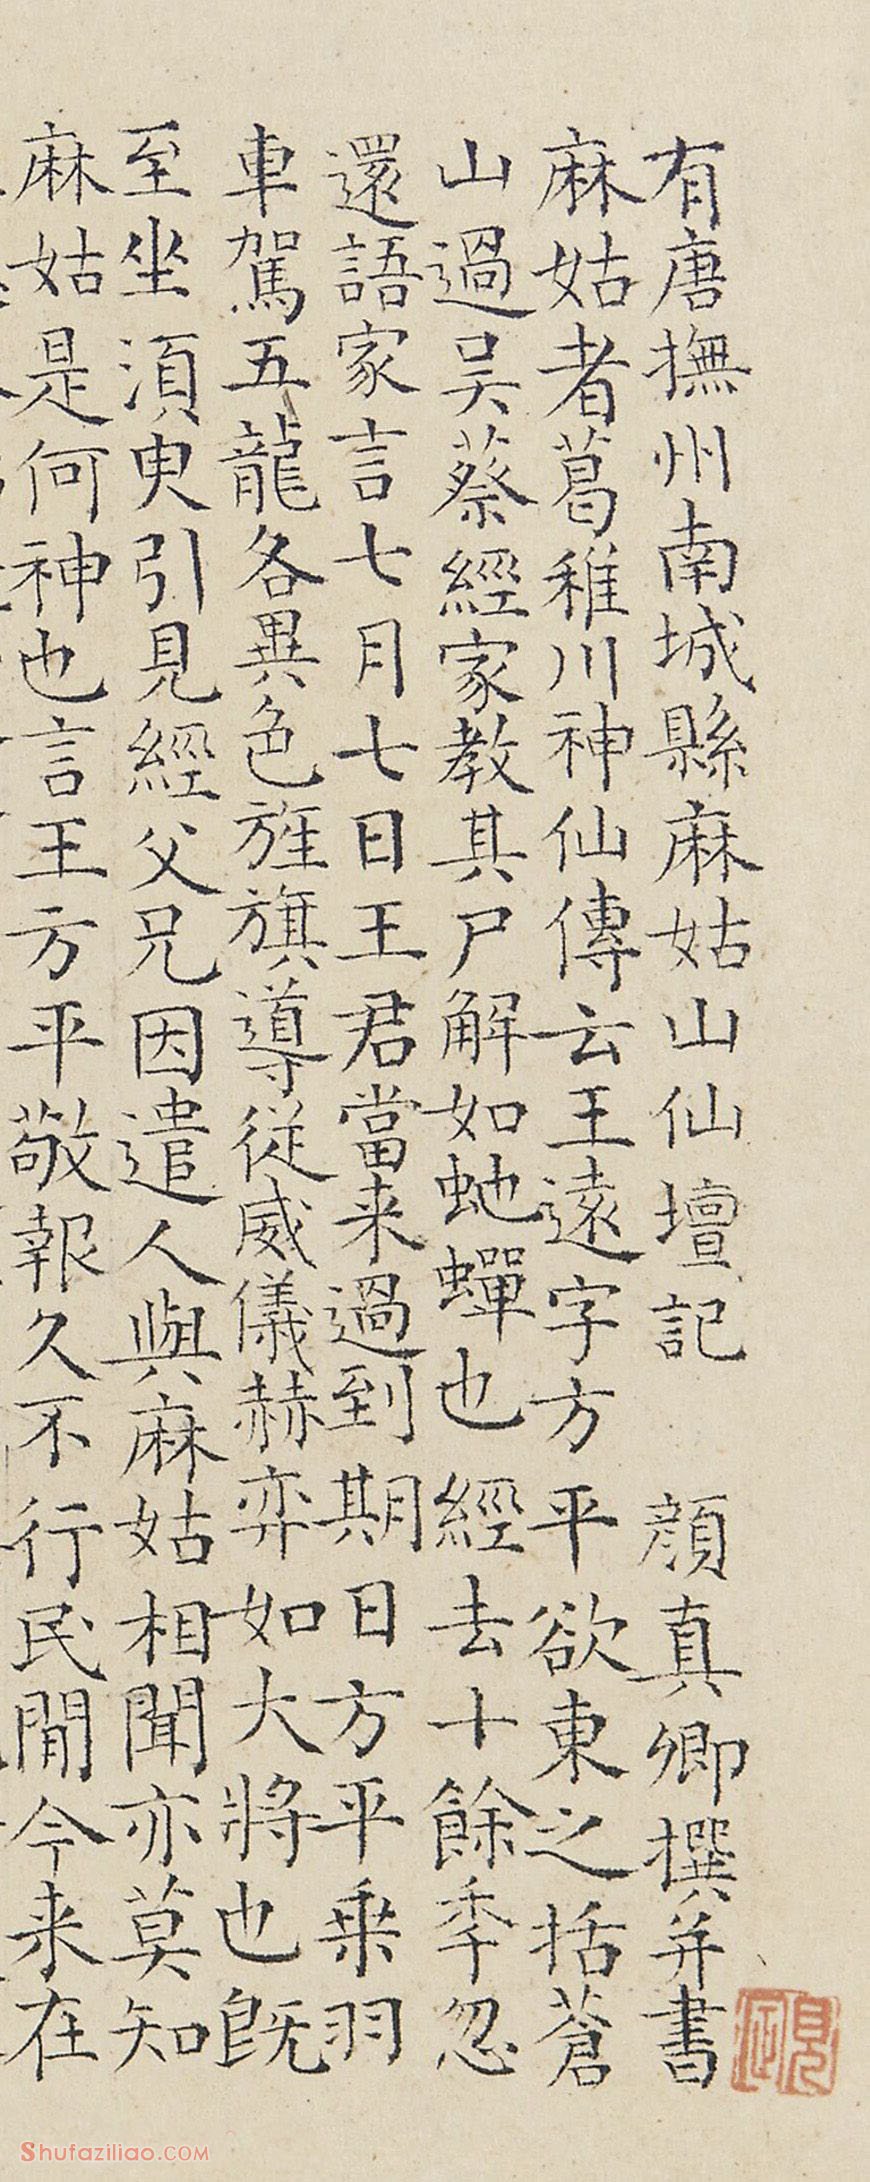 有唐撫州南城縣麻姑山仙壇記 顏真卿撰并書
麻姑者葛稚川神仙傳云王遠字方平欲東之括蒼
山過吴蔡經家教其尸解如虵蟬也經去十餘秊忽
還語家言七月七日王君當来過到期日方平乗羽
車駕五龍各異色旌旗導從威儀赫弈如大將也既
至坐湏臾引見經父兄因遣人與麻姑相聞亦莫知
麻姑是何神也言王方平敬報久不行民間今来在
Shufaziliao.COM